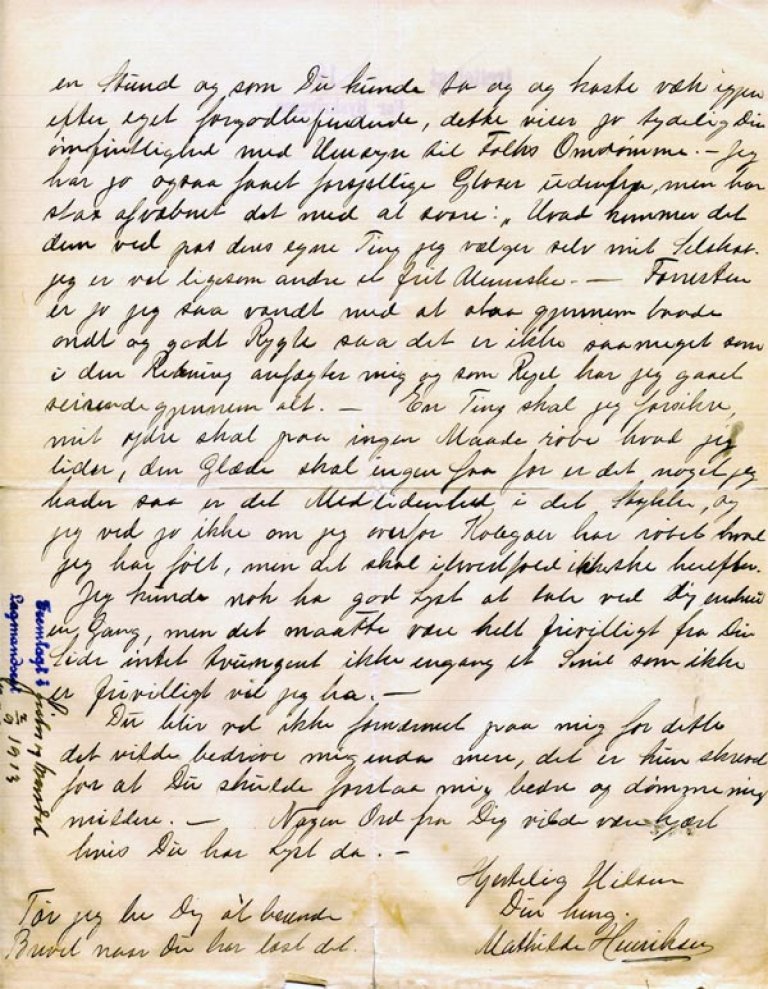 en Stund og som Du kunde ta og og kaste væk igjen
efter eget forgodtbefindende, dette viser jo tydelig Din
ømfintlighed med Hensyn til Folks Omdømme. – Jeg
har jo ogsaa faaet forsjellige Gloser udenfra, men har
staa afvæbnet det med at svare: „Hvad kommer det
dem ved pas deres egne Ting jeg vælger selv mit Selskab.
jeg er vel ligesom andre et frit Menneske. – Forresten
er jo jeg saa vandt med at staa gjennem baade
ondt og godt Rygte saa det er ikke saameget som
i den Retning anfægter mig og som Regel har jeg gaaet
seirende gjennem alt. – En Ting skal jeg forsikre,
mit ydre skal paa ingen Maade røbe hvad jeg
lider, den Glæde skal ingen faa for er det noget jeg
hader saa er det Medlidenhed i det Stykke, og
jeg ved jo ikke om jeg overfor Kolegaer har røbet hvad
jeg har følt, men det skal ikke ske herefter.
Jeg kunde nok ha god Lyst at tale ved Dig endnu
en Gang, men det maatte være helt frivilligt fra Din
Side intet tvungent ikke engang et Smil som ikke
er frivilligt vil jeg ha. –
Du blir vel ikke fornærmet paa mig for dette
det vilde bedrøve mig enda mere, det er kun skrevet
for at Du skulde forstaa mig bedre og dømme mig
mildere. – Nogen Ord fra Dig vilde være kjært
hvis Du har Lyst da. –
Hjertelig Hilsen
Din heng.
Mathilde Henriksen
Tør jeg be Dig at brænde
Brevet naar Du har læst det.
Fremlagt i
1913